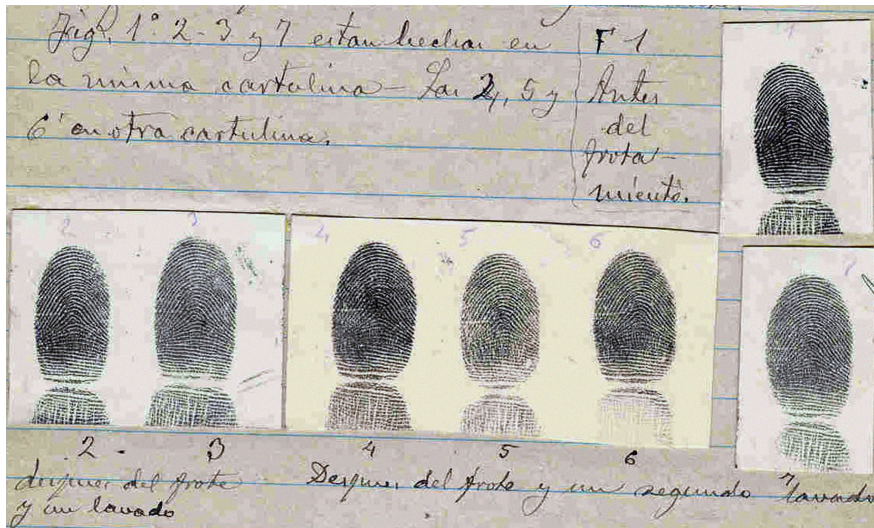 Fig. 1º 2-3 y 7 estan hechas en
la misma cartulina - Las 4, 5 y
6 en otra cartulina.
F 1
Antes
del
frota-
miento.
1
2 3 4 5 6 7
2 3 4 5 6
despues del frote
y un lavado
Despues del frote y un segundo lavado